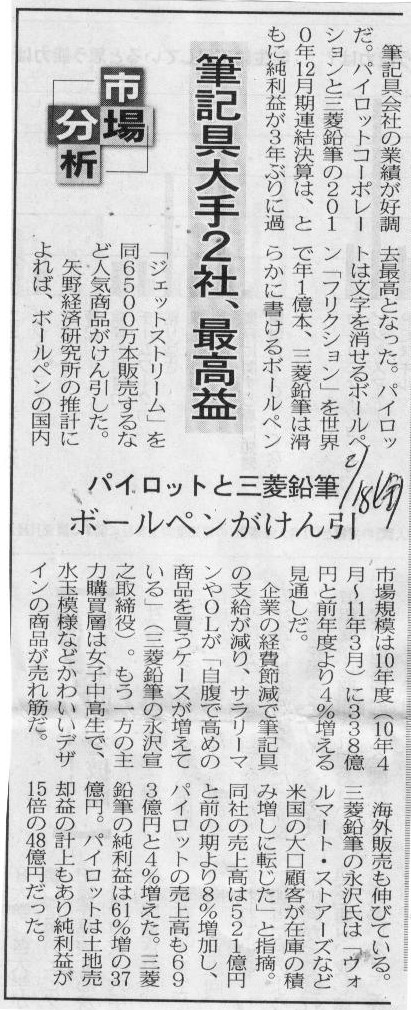 市場分析
筆記具大手2社、最高益
パイロットと三菱鉛筆
ボールペンがけん引
2/18(金)
筆記具会社の業績が好調
だ。パイロットコーポレー
ションと三菱鉛筆の201
0年12月期連結決算は、と
もに純利益が3年ぶりに過
去最高となった。パイロッ
トは文字を消せるボールペ
ン「フリクション」を世界
で年1億本、三菱鉛筆は滑
らかに書けるボールペン
「ジェットストリーム」を
同6500万本販売するな
ど人気商品がけん引した。
矢野経済研究所の推計に
よれば、ボールペンの国内
市場規模は10年度(10年4
月〜11年3月)に338億
円と前年度より4%増える
見通しだ。
企業の経費節減で筆記具
の支給が減り、サラリーマ
ンやOLが「自腹で高めの
商品を買うケースが増えて
いる」(三菱鉛筆の永沢宣
之取締役)。もう一方の主
力購買層は女子中高生で、
水玉模様などかわいいデザ
インの商品が売れ筋だ。
海外販売も伸びている。
三菱鉛筆の永沢氏は「ウォ
ルマート・ストアーズなど
米国の大口顧客が在庫の積
み増しに転じた」と指摘。
同社の売上高は521億円
と前の期より8%増加し、
パイロットの売上高も69
3億円と4%増えた。三菱
鉛筆の純利益は61%増の37
億円。パイロットは土地売
却益の計上もあり純利益が
15倍の48億円だった。